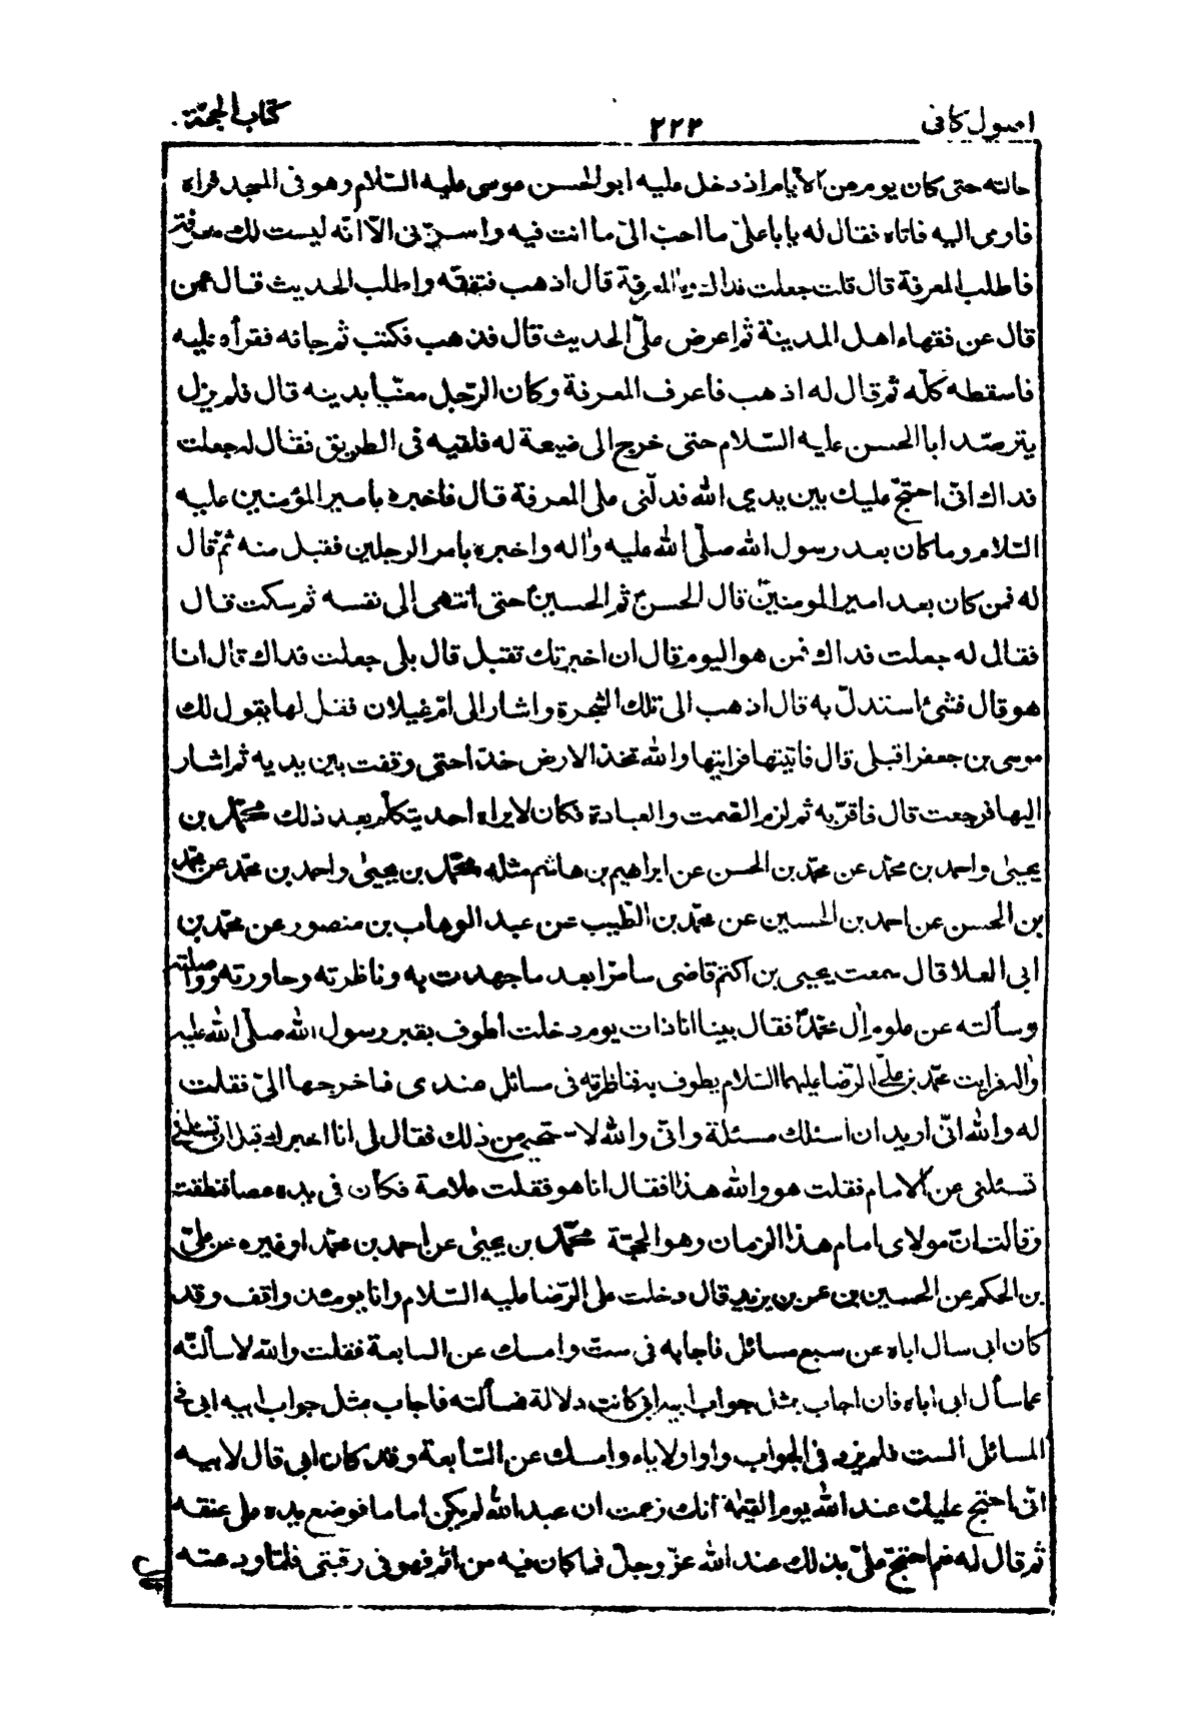 اصول كافى ٢٢٣ كتاب الحجّة
حالته حتى كان يوم من الأيام اذ دخل عليه ابو الحسن موسى عليه السّلام وهو فى المسجد فرآه
فاومى اليه فاتاه فقال له يا با علىّ ما احبّ الىّ ما انت فيه واسرّنى الّا انّه ليست لك معرفة
فاطلب المعرفة قال قلت جعلت فداك وما المعرفة قال اذهب فتفقّه واطلب الحديث قال عمن
قال عن فقهاء اهل المدينة ثم اعرض علىّ الحديث قال فذهب فكتب ثم جائه فقرأه عليه
فاسقطه كلّه ثم قال له اذهب فاعرف المعرفة وكان الرّجل معنّيا بدينه قال فلم يزل
يترصّد ابا الحسن عليه السّلام حتى خرج الى ضيعة له فلقيه فى الطريق فقال له جعلت
فداك انّى احتجّ عليك بين يدي الله فدلّنى على المعرفة قال فاخبره بامير المؤمنين عليه
السّلام وما كان بعد رسول الله صلّى الله عليه واٰله واخبره بامر الرجلين فقبل منه ثمّ قال
له فمن كان بعد امير المومنين قال الحسن ثم الحسين حتى انتهى الى نفسه ثم سكت قال
فقال له جعلت فداك فمن هو اليوم قال ان اخبرتك تقبل قال بلى جعلت فداك قال انا
هو قال فشئ استدلّ به قال اذهب الى تلك الشجرة واشار الى امّ غيلان فقل لها يقول لك
موسى بن جعفر اقبلى قال فاتيتها فرايتها والله تخذ الارض خدّا حتى وقفت بين يديه ثم اشار
اليها فرجعت قال فاقرّ به ثم لزم الصّمت والعبادة فكان لا يراه احد يتكلّم بعد ذلك محمّد بن
يحيىٰ واحمد بن محمّد عن محمّد بن الحسن عن ابراهيم بن هاشم مثله محمّد بن يحيىٰ واحمد بن محمّد عن محمّد
بن الحسن عن احمد بن الحسين عن محمّد بن الطّيب عن عبد الوهاب بن منصور عن محمّد بن
ابى العلا قال سمعت يحيى بن اكثم قاضى سامرّا بعد ما جهدت به وناظرته وحاورته وواصلته
وسألته عن علوم اٰل محمّد فقال بينا انا ذات يوم دخلت اطوف بقبر رسول الله صلّى الله عليه
واٰله فرايت محمّد بن علىّ الرّضا عليهما السّلام يطوف به فناظرته فى سائل عندى فاخرجها الىّ فقلت
له والله انّى اريد ان اسئلك مسئلة وانّى والله لاستحيى من ذلك فقال لى انا اخبرك قبل ان تسئلنى
تسئلنى عن الامام فقلت هو والله هذا فقال انا هو فقلت علامة فكأن فى يده عصا فنطقت
وقالت انّ مولاى امام هذا الزمان وهو الحجّة محمّد بن يحيىٰ عن احمد بن محمّد او غيره عن علىّ
بن الحكم عن الحسين بن عمر بن يزيد قال دخلت على الرّضا عليه السّلام وانا يومئذ واقف وقد
كان ابى سال اباه عن سبع مسائل فاجابه فى ستّ وامسك عن السابعة فقلت والله لاسألنّه
عما سأل ابى اباه فان اجاب بمثل جواب ابيه كانت دلالة فسألته فاجاب بمثل جواب ابيه ابى فى
المسائل الست فلم يزد فى الجواب واوا ولا ياء وامسك عن السّابعة وقد كان ابى قال لابيه
انّى احتج عليك عند الله يوم القيٰمة انك زعمت ان عبد الله لم يكن اماما فوضع يده على عنقه
ثم قال له نعم احتجّ علىّ بذلك عند الله عزّ وجلّ فما كان فيه من اثم فهو فى رقبتى فلمّا ودعته